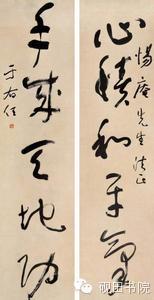 心積和平氣
惕庵先生法正
手成天地功
于右任
砚田书院